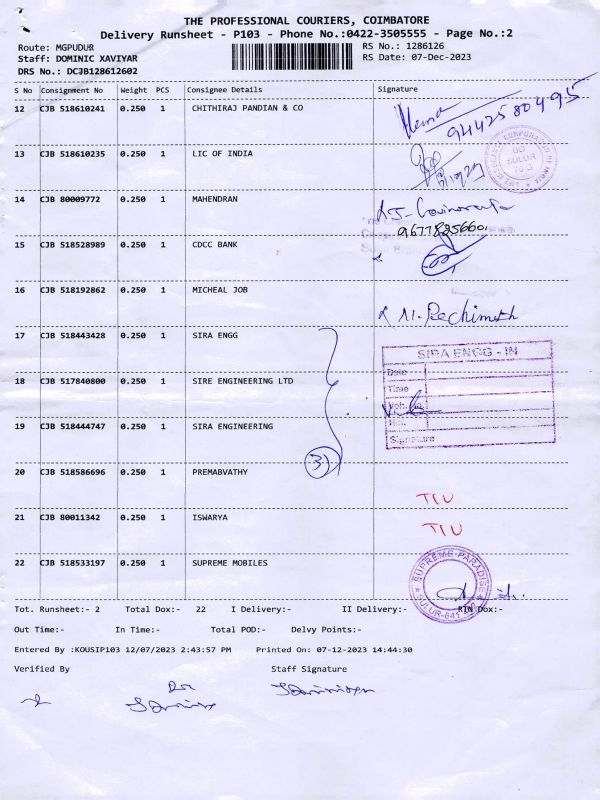 THE PROFESSIONAL COURIERS, COIMBATORE
Delivery Runsheet - P103 - Phone No.:0422-3505555 - Page No.:2
Route: MGPUDUR RS No.: 1286126
Staff: DOMINIC XAVIYAR RS Date: 07-Dec-2023
DRS No.: DCJB128612602
S No Consignment No Weight PCS Consignee Details Signature
12 CJB 518610241 0.250 1 CHITHIRAJ PANDIAN & CO
9442580495
13 CJB 518610235 0.250 1 LIC OF INDIA
SULUR
14 CJB 80009772 0.250 1 MAHENDRAN
15 CJB 518528989 0.250 1 CDCC BANK
16 CJB 518192862 0.250 1 MICHEAL JOB
17 CJB 518443428 0.250 1 SIRA ENGG
SIRA ENGG - IN
Date
Time
18 CJB 517840800 0.250 1 SIRE ENGINEERING LTD
Veh. No.
19 CJB 518444747 0.250 1 SIRA ENGINEERING
Signature
3
20 CJB 518586696 0.250 1 PREMABVATHY
TIU
21 CJB 80011342 0.250 1 ISWARYA
TIU
22 CJB 518533197 0.250 1 SUPREME MOBILES
SUPREME PARADISE
Tot. Runsheet:- 2 Total Dox:- 22 I Delivery:- II Delivery:- RTN Dox:-
Out Time:- In Time:- Total POD:- Delvy Points:-
Entered By :KOUSIP103 12/07/2023 2:43:57 PM Printed On: 07-12-2023 14:44:30
Verified By Staff Signature